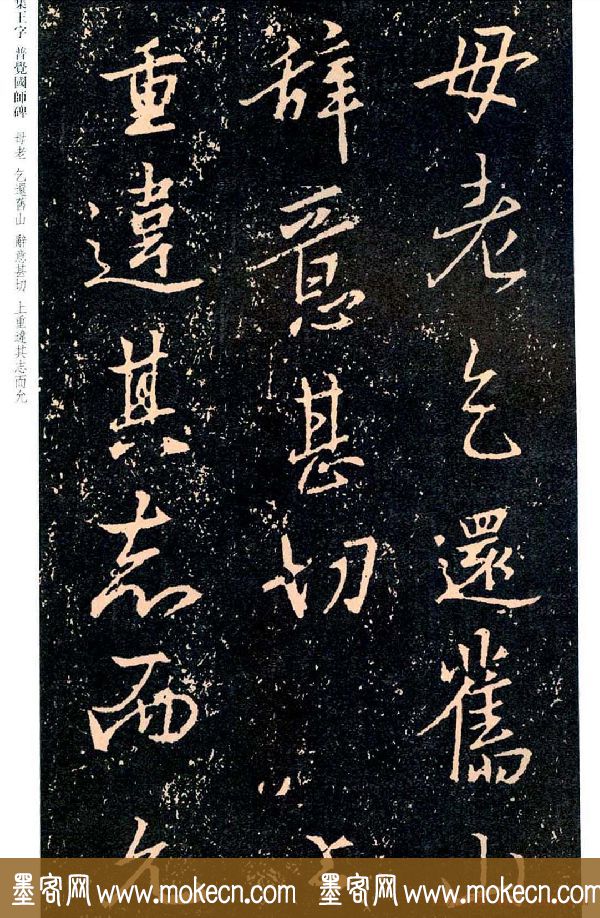 母老乞還舊山
辭意甚切上
重違其志而允
集王字 普覺國師碑 母老 乞還舊山 辭意甚切 上重違其志而允
墨客网 www.mokecn.com 墨客网 www.mokecn.com 墨客网 www.mokecn.com